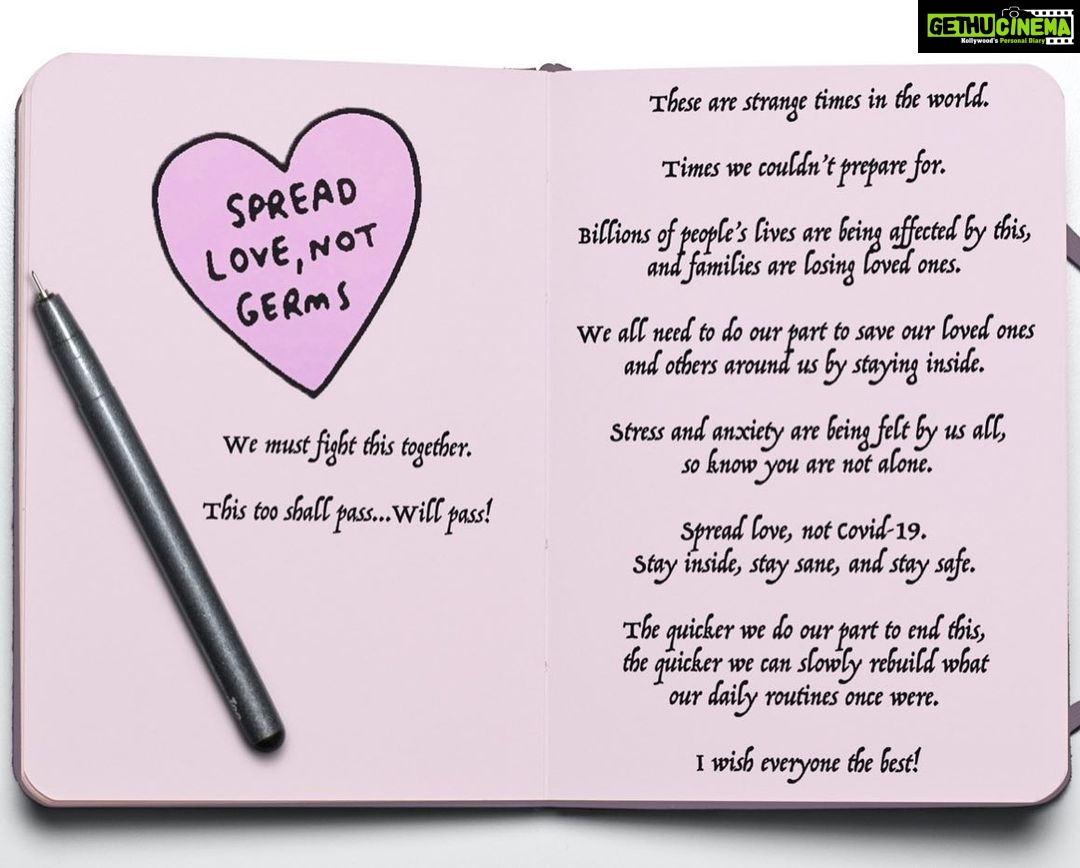 GETHU CINEMA
Kollywood's Personal Diary
SPREAD
LOVE, NOT
GERMS
We must fight this together.
This too shall pass...Will pass!
These are strange times in the world.
Times we couldn't prepare for.
Billions of people's lives are being affected by this,
and families are losing loved ones.
We all need to do our part to save our loved ones
and others around us by staying inside.
Stress and anxiety are being felt by us all,
so know you are not alone.
Spread love, not Covid-19.
Stay inside, stay sane, and stay safe.
The quicker we do our part to end this,
the quicker we can slowly rebuild what
our daily routines once were.
I wish everyone the best!